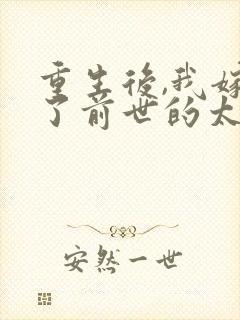 重生後,我嫁
了前世的太
安然一世